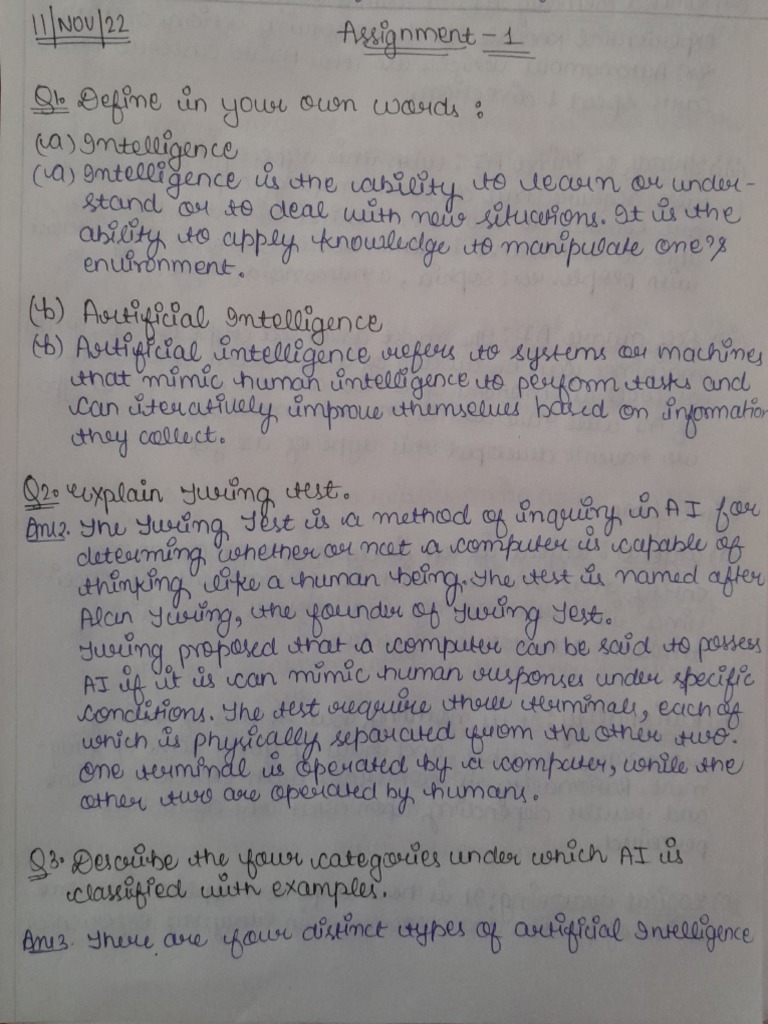 11/NOV/22
Assignment - 1
Q1. Define in your own words :
(a) Intelligence
(a) Intelligence is the ability to learn or under-
stand or to deal with new situations. It is the
ability to apply knowledge to manipulate one's
environment.
(b) Artificial Intelligence
(b) Artificial intelligence refers to systems or machines
that mimic human intelligence to perform tasks and
can iteratively improve themselves based on information
they collect.
Q2. Explain Turing test.
Ans2. The Turing Test is a method of inquiry in AI for
determing whether or not a computer is capable of
thinking like a human being. The test is named after
Alan Turing, the founder of Turing Test.
Turing proposed that a computer can be said to possess
AI if it is can mimic human responses under specific
conditions. The test require three terminals, each of
which is physically separated from the other two.
One terminal is operated by a computer, while the
other two are operated by humans.
Q3. Describe the four categories under which AI is
classified with examples.
Ans3. There are four distinct types of artificial Intelligence